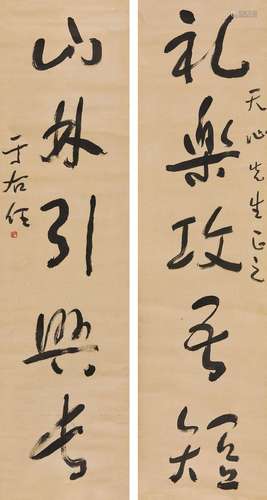 礼樂攻吾短
天心先生正之
山林引興长
于右任